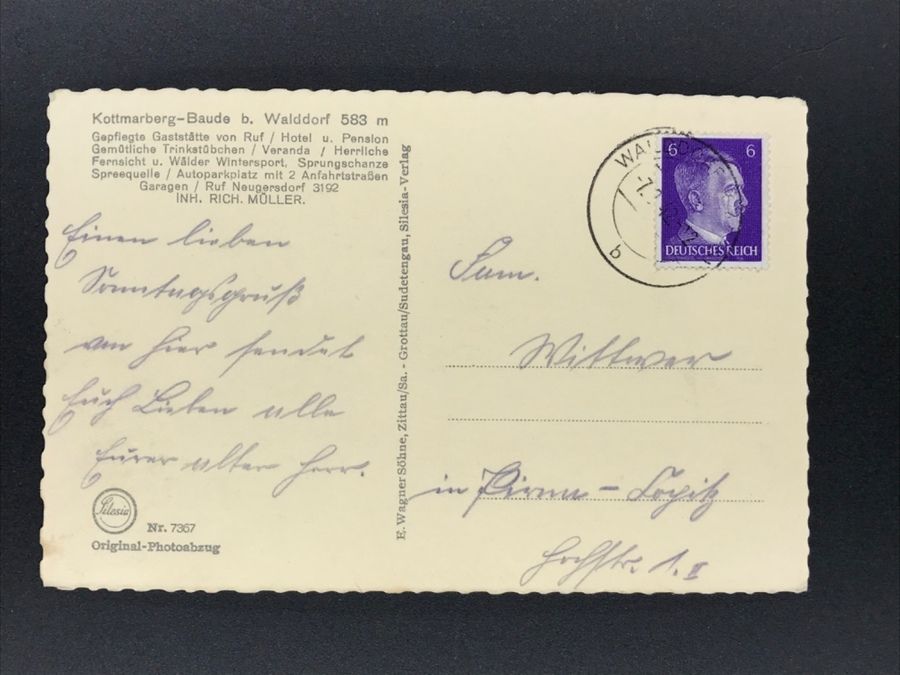 Kottmarberg-Baude b. Walddorf 583 m
Gepflegte Gaststätte von Ruf / Hotel u. Pension
Gemütliche Trinkstübchen / Veranda / Herrliche
Fernsicht u. Wälder Wintersport, Sprungschanze
Spreequelle / Autoparkplatz mit 2 Anfahrtstraßen
Garagen / Ruf Neugersdorf 3192
INH. RICH. MÜLLER.
Einen lieben
Sonntagsgruß
von hier sendet
Euch Lieben alle
Eurer alter
Silesia
Nr. 7367
Original-Photoabzug
E. Wagner Söhne, Zittau/Sa. - Grottau/Sudetengau, Silesia-Verlag
6 6
DEUTSCHES REICH
b
Fam.
Wittwer
in Pirna - Copitz
Hochstr. 1. II